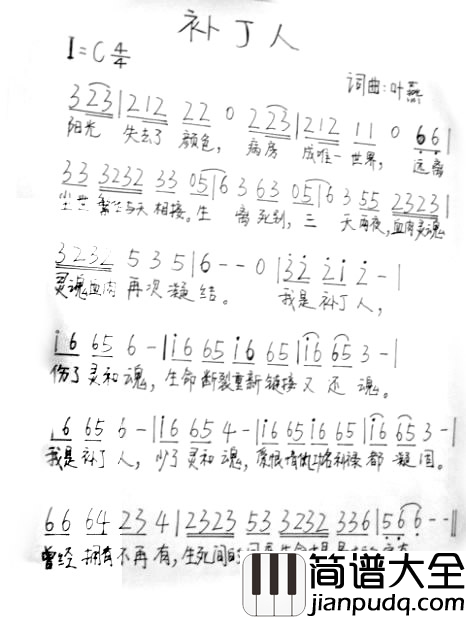 补丁人
1=C 4/4
词曲:叶燕
3 23|212 22 0 2 23|212 11 0 66|
阳光 失去了 颜色, 病房 成唯一世界, 远离
33 3232 33 05|6 3 63 05|6 3 55 2323|
尘世 与天相接。生 离死别, 三 天两夜,血肉灵魂
3232 5 3 5|6 - - 0|3̇2̇ 2̇1̇ 2̇ -|
灵魂血肉 再次凝结。 我是补丁人,
1̇6 65 6 -|1̇6 65 1̇6 65|1̇6 65 3 -|
伤了灵和魂, 生命断裂重新链接又还魂。
1̇6 65 6 -|1̇6 65 4 -|1̇6 65 1̇6 65|1̇6 65 3 -|
我是补丁人, 少了灵和魂, 爱恨情 都凝固。
66 64 23 4|2323 53 3232 336|5 6 6 - -‖
曾经拥有不再有, 生死间的
简谱大全
www.jianpudq.com